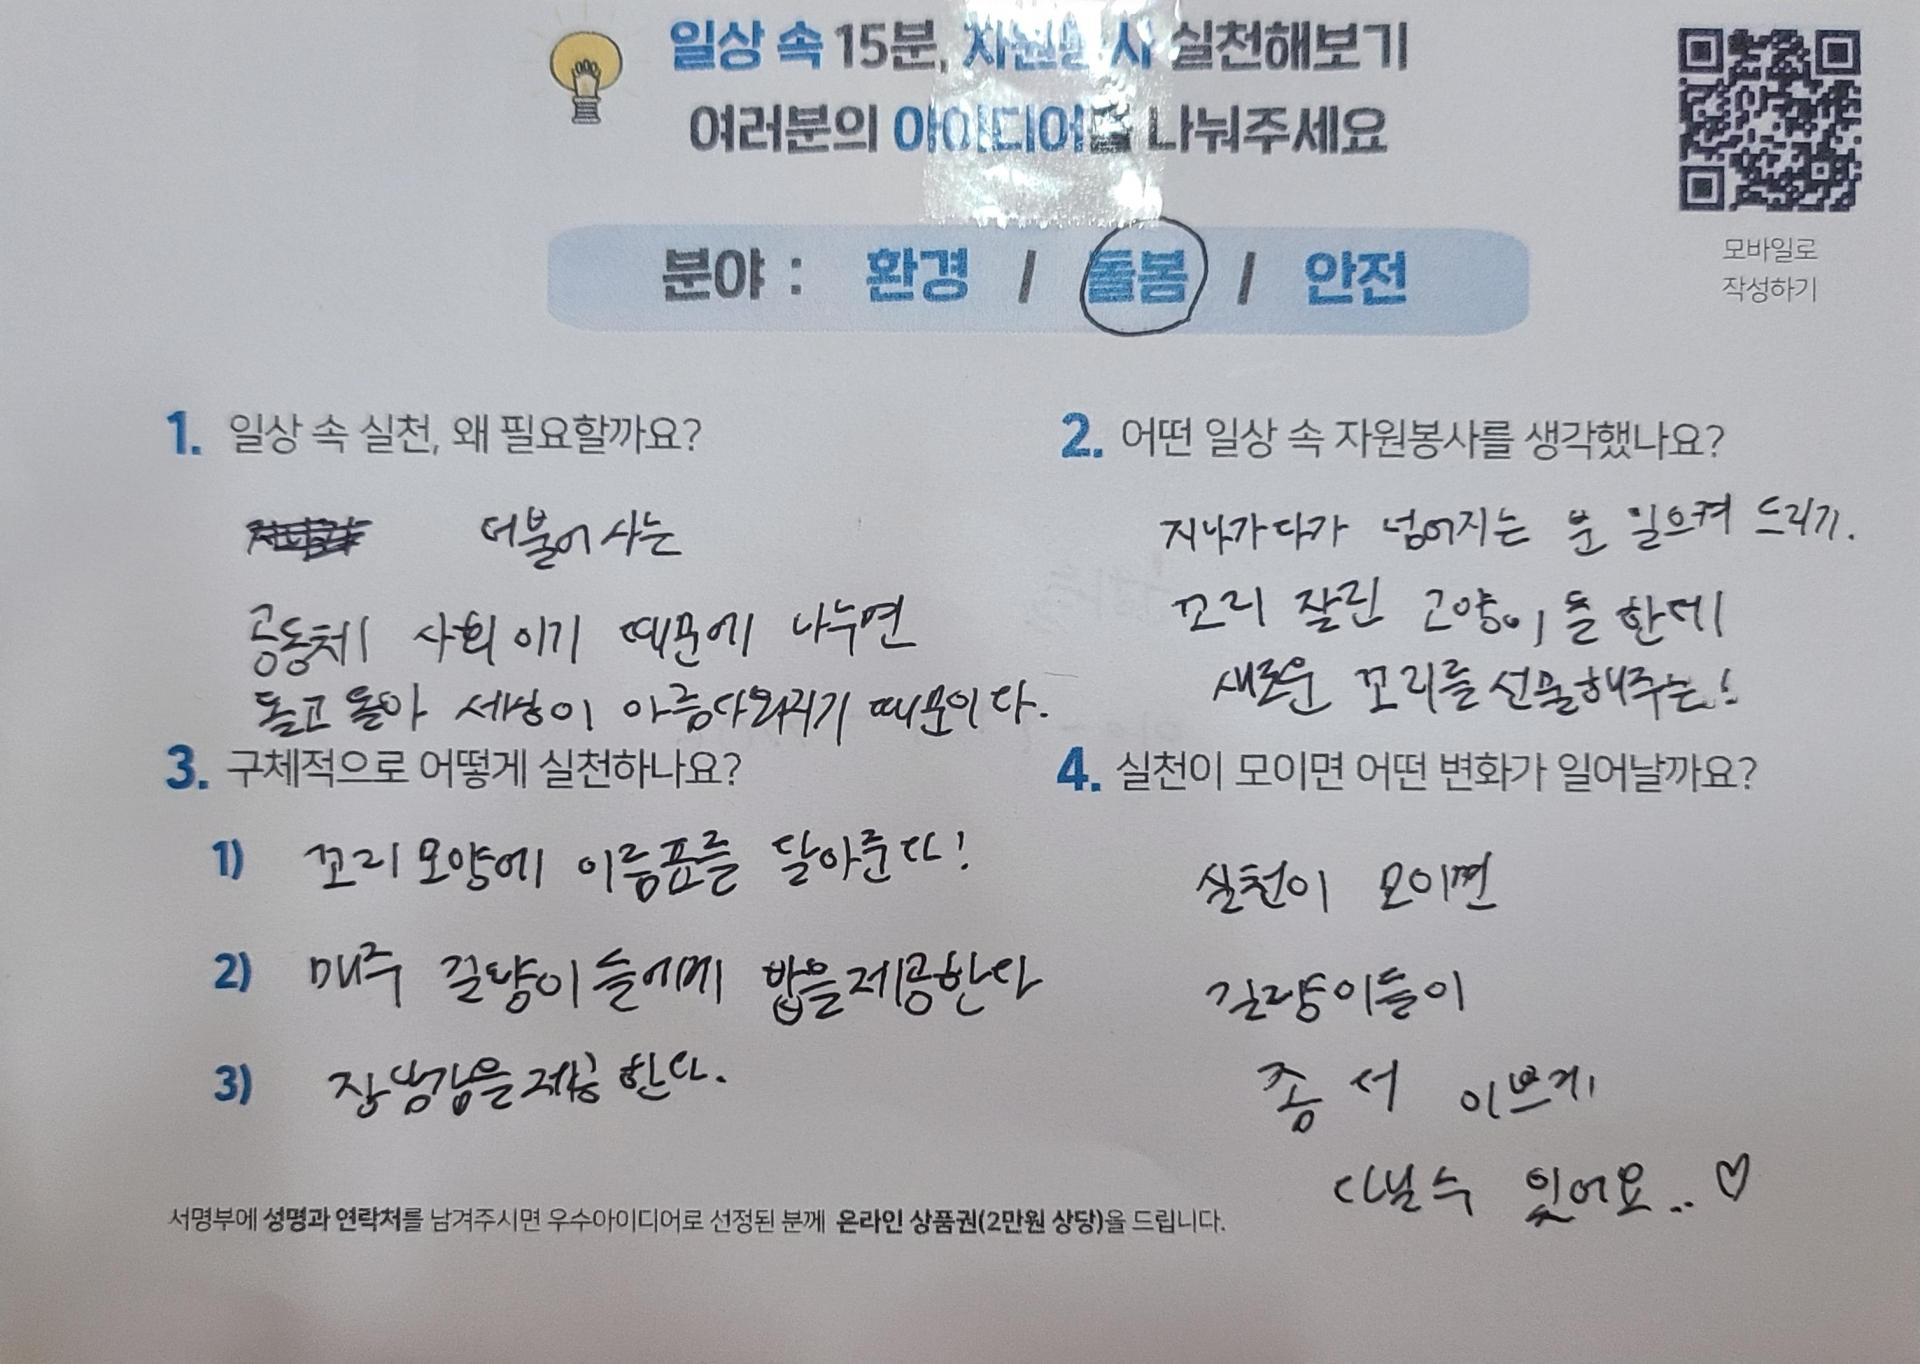 일상 속 15분, 자원봉사 실천해보기
여러분의 아이디어를 나눠주세요
모바일로
작성하기
분야 : 환경 / 돌봄 / 안전
1. 일상 속 실천, 왜 필요할까요?
더불어 사는
공동체 사회 이기 때문에 나누면
돌고 돌아 세상이 아름다워지기 때문이다.
2. 어떤 일상 속 자원봉사를 생각했나요?
지나가다가 넘어지는 분 일으켜 드리기.
꼬리 잘린 고양이들 한테
새로운 꼬리를 선물해주는!
3. 구체적으로 어떻게 실천하나요?
1) 꼬리 모양에 이름표를 달아준다!
2) 매주 길량이들에게 밥을 제공한다
3) 장난감을 제공 한다.
4. 실천이 모이면 어떤 변화가 일어날까요?
실천이 모이면
길량이들이
좀 서 이쁘게
다닐수 있어요.. ♡
서명부에 성명과 연락처를 남겨주시면 우수아이디어로 선정된 분께 온라인 상품권(2만원 상당)을 드립니다.